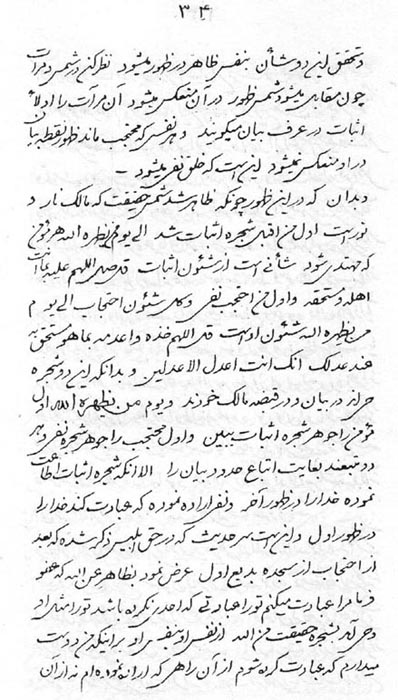 ۳۴
و تحقق این دو شأن بنفس ظاهر در ظهور میشود نظر کن در شمس و مرآت
چون مقابل میشود شمس ظهور در آن منعکس میشود آن مرآت را ادلاء
اثبات در عرف بیان میگویند و هر نفسی که محتجب ماند ظهور نقطه بیان
در او منعکس نمیشود این است که خلق نفی میشود -
و بدان که در این ظهور چونکه ظاهر شد شمس حقیقت که مالک نار و
نور است اول من اقبل شجره اثبات شد الی یوم من یظهره الله هر مؤمن
که مهتدی شود شأنی است از شئون اثبات قل صل اللهم علیه بما انت
اهله و مستحقه و اول من احتجب نفی و کل شئون احتجاب الی یوم
من یظهره الله شئون اوست قل اللهم خذه واعدمه بما هو مستحق به
عند عدلک انک انت اعدل الاعدلین و بدانکه این دو شجره
در بیان و در قبضه مالک خودند و یوم من یظهره الله اول
مؤمن را جوهر شجره اثبات ببین و اول محتجب را جوهر شجره نفی و هر
دو متبعند بغایت اتباع حدود بیان را الا آنکه شجره اثبات اطاعت
نموده خدا را در ظهور آخر و نفی اراده نموده که عبادت کند خدا را
در ظهور اول و این است سر حدیث که در حق ابلیس ذکر شده که بعد
از احتجاب از سجده بدیع اول عرض نمود بظاهر عن الله که عفو
فرما مرا عبادت میکنم تو را عبادتی که احدی نکرده باشد تو را مثل او
وحی آمد بشجره حقیقت من الله از نفس او بنفس او بر اینکه من دوست
میدارم که عبادت کرده شوم از آن راهی که اراده نموده‌ام نه از آن